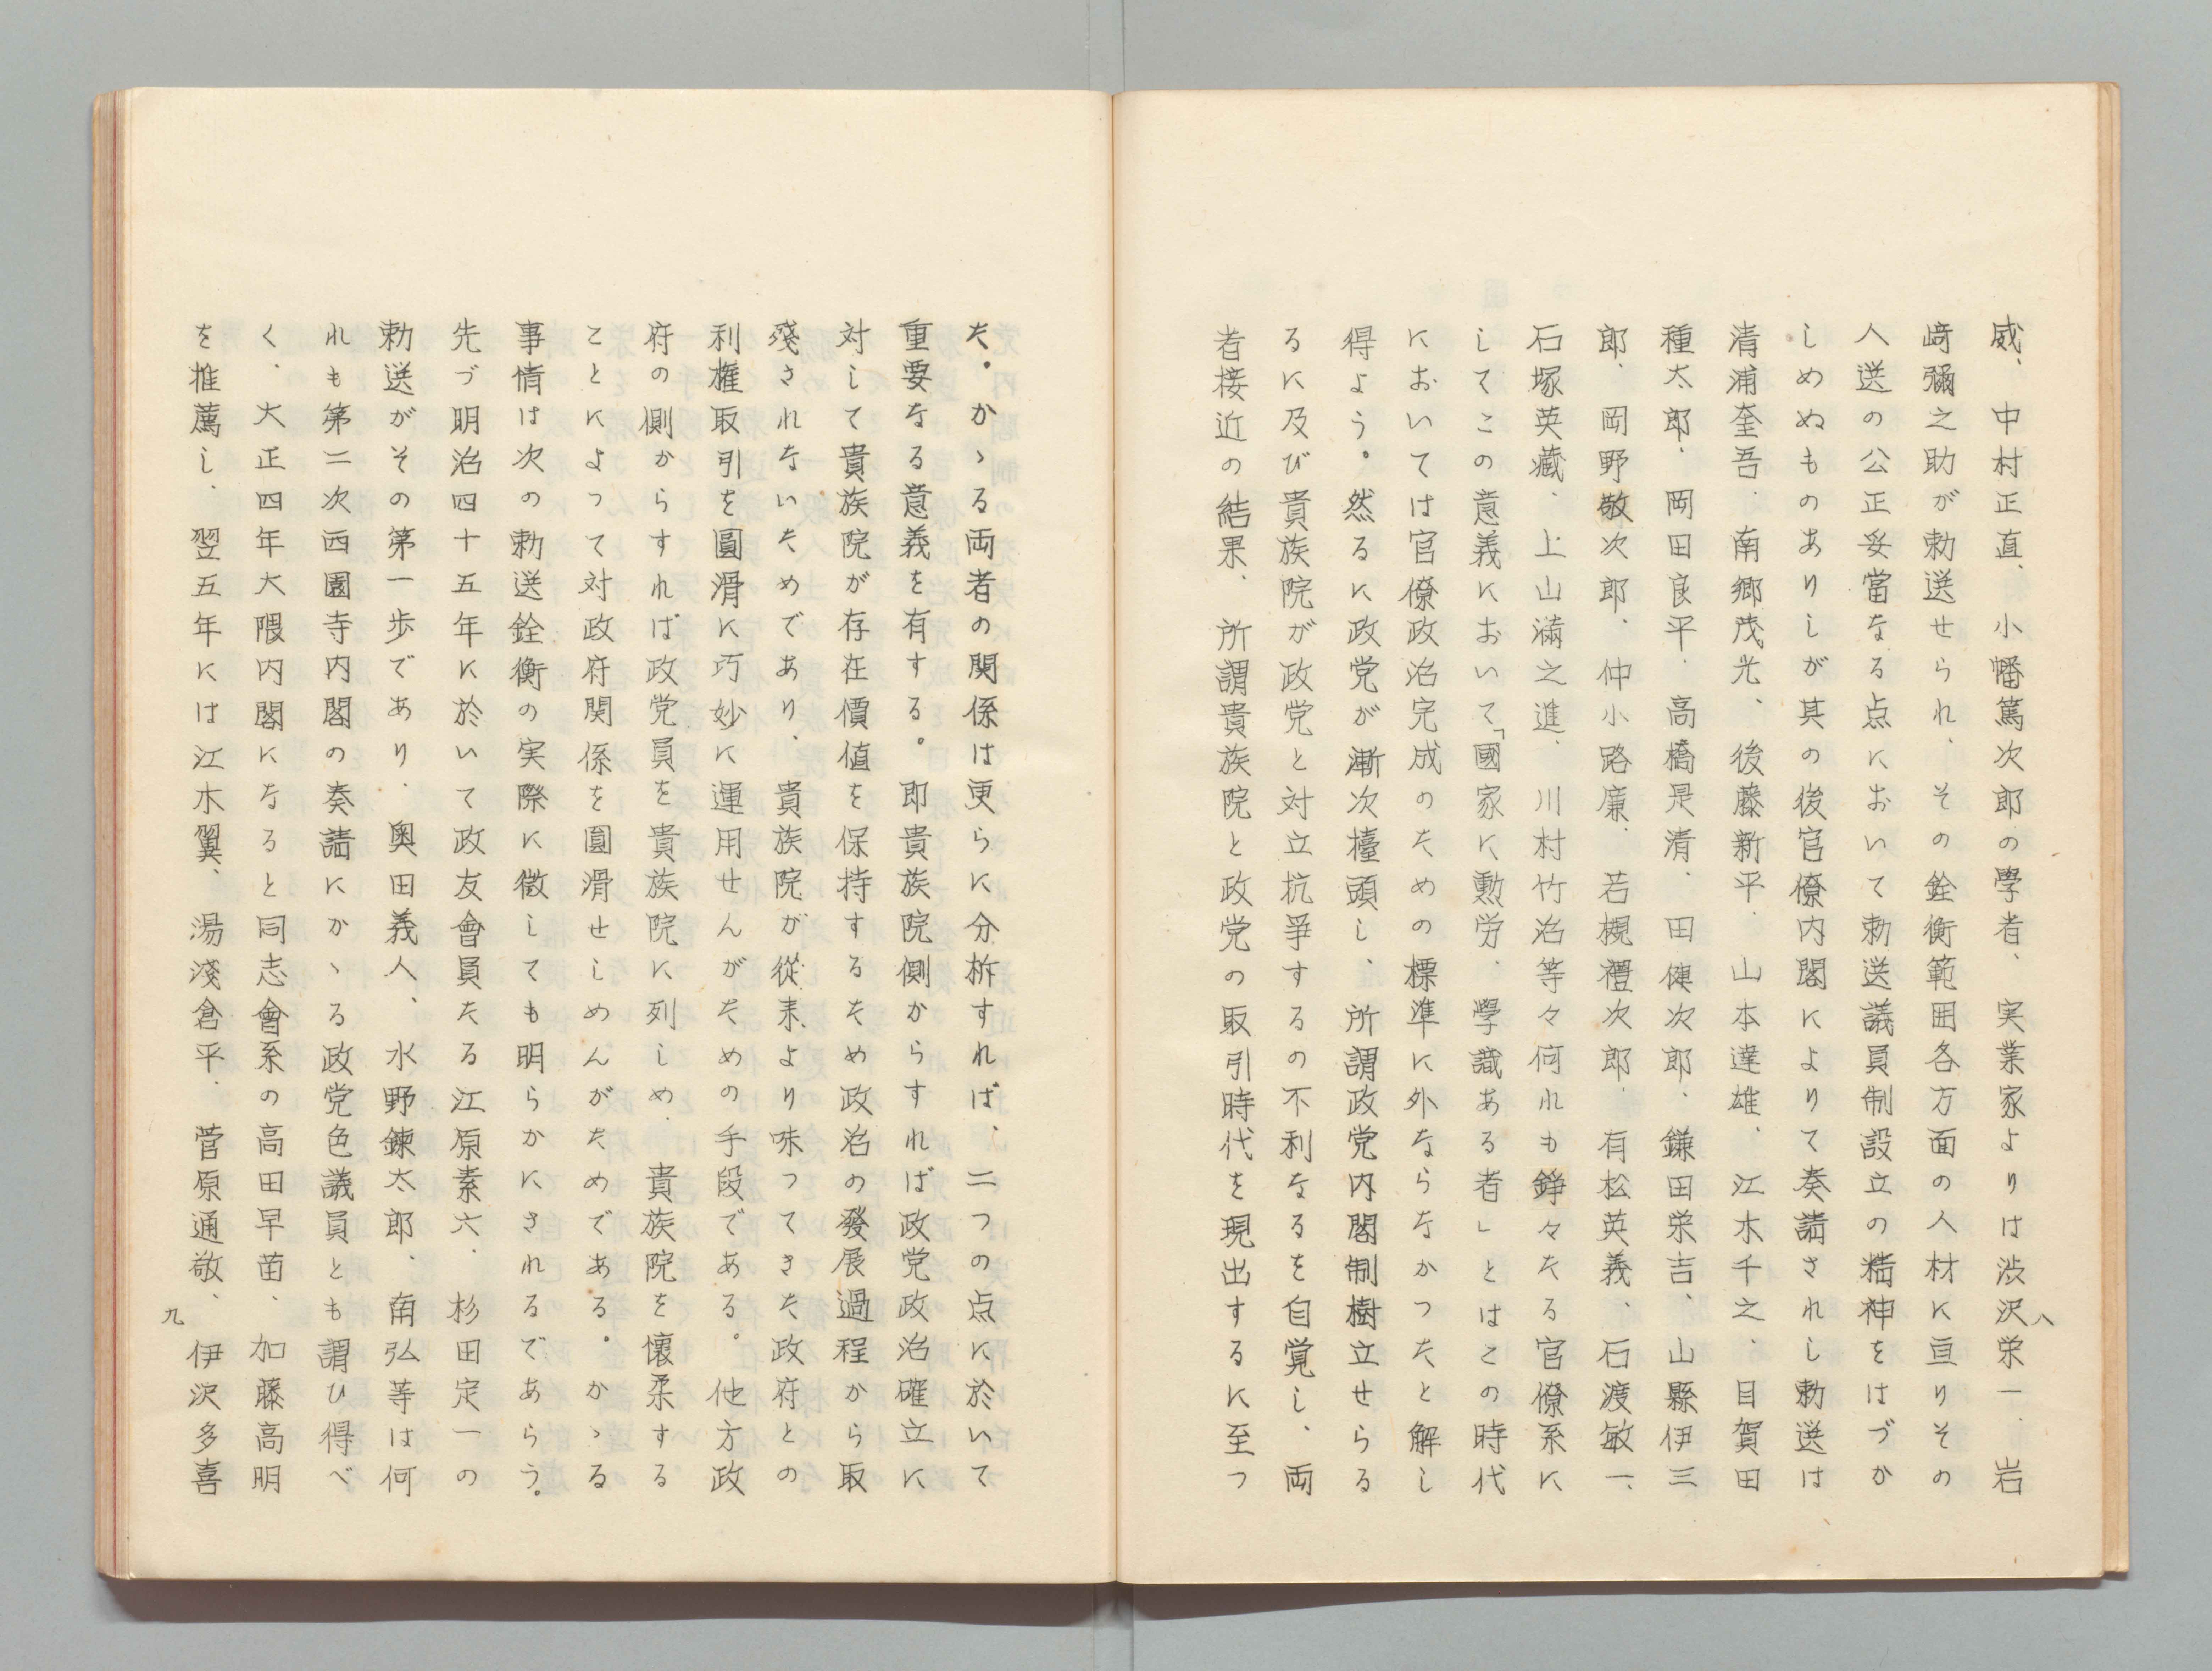 威、中村正直、小幡篤次郎の學者、実業家よりは渋沢栄一、岩
﨑彌之助が勅送せられ、その銓衡範囲各方面の人材に亘りその
人送の公正妥當なる点において勅送議員制設立の精神をはづか
しめぬものありしが其の後官僚内閣によりて奏請されし勅送は
清浦奎吾、南郷茂光、後藤新平、山本達雄、江木千之、目賀田
種太郎、岡田良平、高橋是清、田健次郎、鎌田栄吉、山縣伊三
郎、岡野敬次郎、仲小路廉、若槻禮次郎、有松英義、石渡敏一、
石塚英藏、上山滿之進、川村竹治等々何れも錚々たる官僚系に
してこの意義において「國家に勲労、學識ある者」とはこの時代
においては官僚政治完成のための標準に外ならなかつたと解し
得よう。然るに政党が漸次擡頭し、所謂政党内閣制樹立せらる
るに及び貴族院が政党と対立抗爭するの不利なるを自覚し、両
者接近の結果、所謂貴族院と政党の取引時代を現出するに至つ
八
た。かゝる両者の関係は更らに分柝すれば、二つの点に於いて
重要なる意義を有する。即貴族院側からすれば政党政治確立に
対して貴族院が存在價値を保持するため政治の發展過程から取
殘されないためであり、貴族院が從来より味つてきた政府との
利権取引を圓滑に巧妙に運用せんがための手段である。他方政
府の側からすれば政党員を貴族院に列しめ、貴族院を懷柔する
ことによつて対政府関係を圓滑せしめんがためである。かゝる
事情は次の勅送銓衡の実際に徴しても明らかにされるであらう。
先づ明治四十五年に於いて政友會員たる江原素六、杉田定一の
勅送がその第一歩であり、奥田義人、水野錬太郎、南弘等は何
れも第二次西園寺内閣の奏請にかゝる政党色議員とも謂ひ得べ
く、大正四年大隈内閣になると同志會系の高田早苗、加藤高明
を推薦し、翌五年には江木翼、湯淺倉平、菅原通敬、伊沢多喜
九